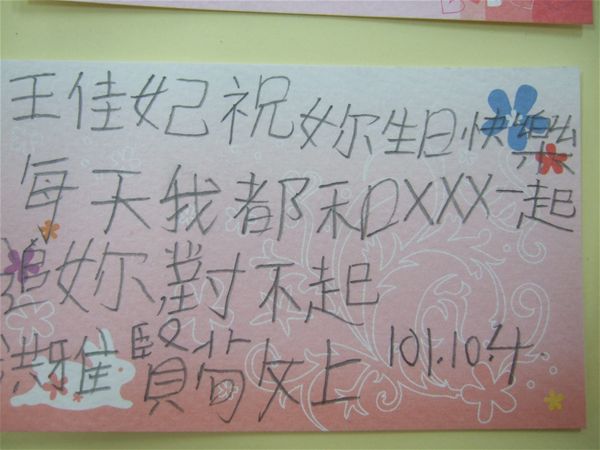 王佳妃祝妳生日快樂
每天我都和DXXX一起
追妳對不起
洪雅賢筍敬上 101.10.4